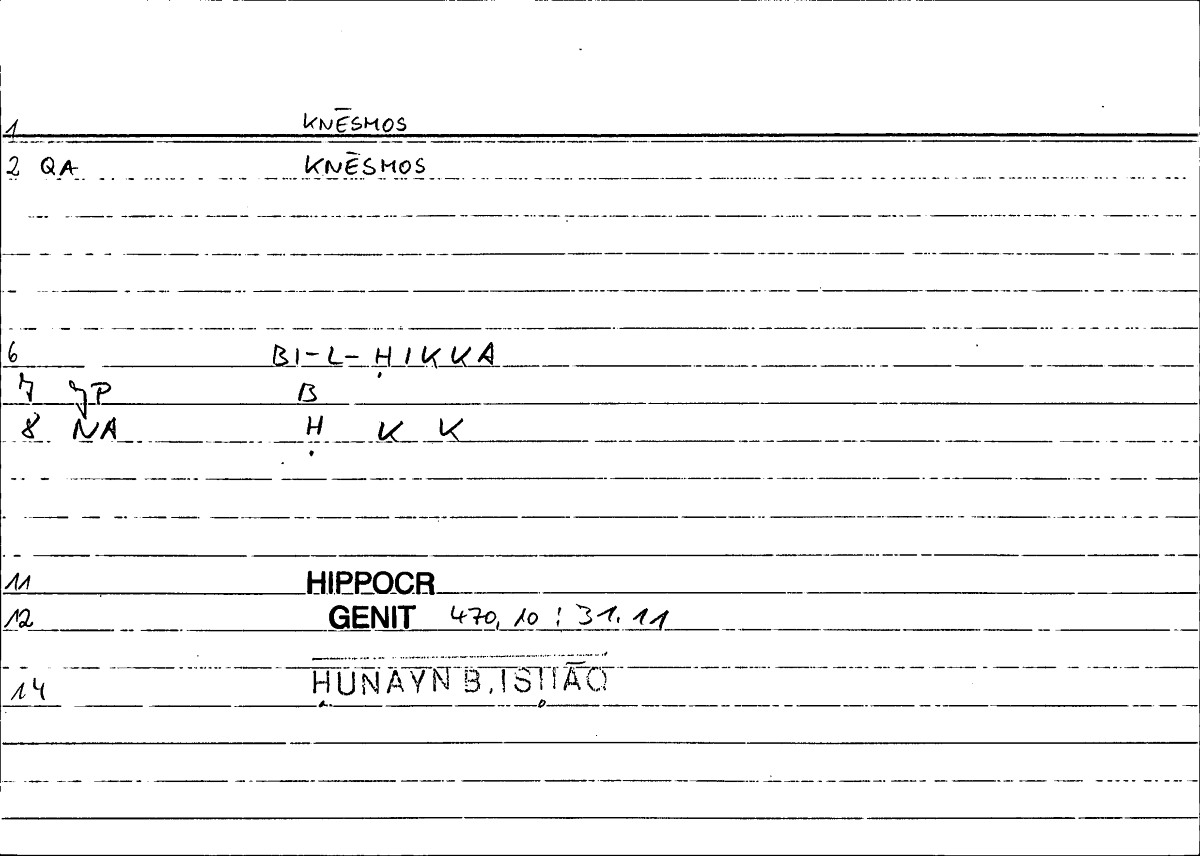 1 KNĒSMOS
2 QA KNĒSMOS
6 BI-L-ḤIKKA
7 JP B
8 NA Ḥ K K
11 HIPPOCR
12 GENIT 470, 10 : 31. 11
14 ḤUNAYN B. ISḤĀQ